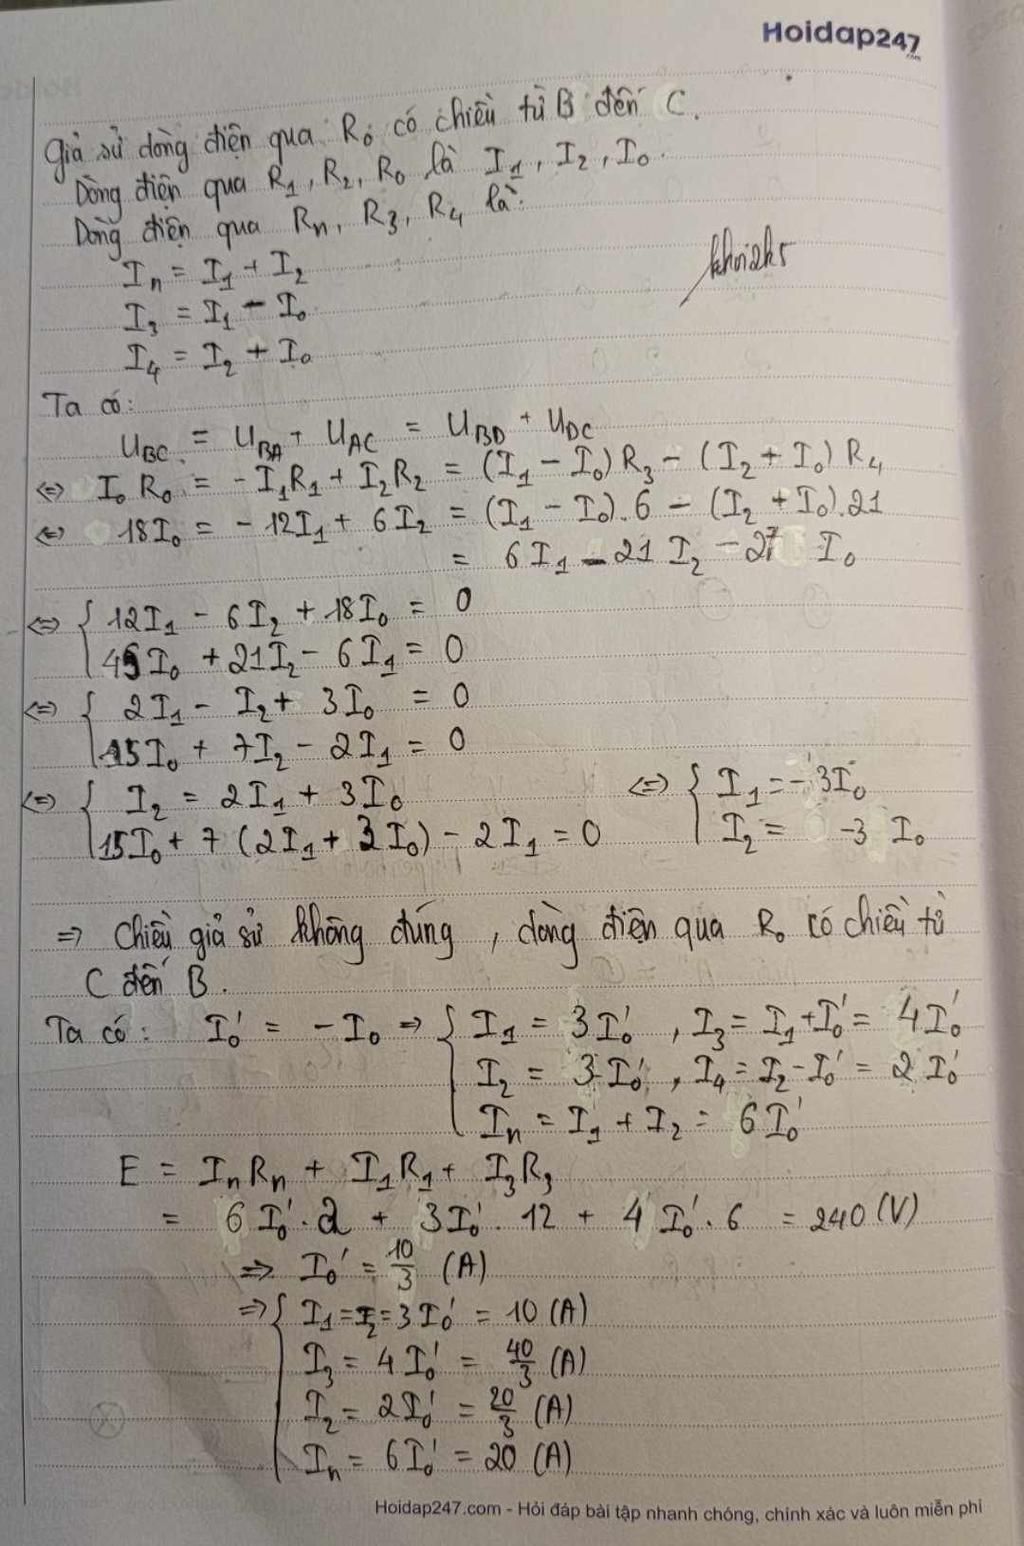 Hoidap247
.com
Giả sử dòng điện qua R₀ có chiều từ B đến C.
Dòng điện qua R₁, R₂, R₀ là I₁, I₂, I₀.
Dòng điện qua Rₙ, R₃, R₄ là:
Iₙ = I₁ + I₂
khoi2k5
I₃ = I₁ - I₀
I₄ = I₂ + I₀
Ta có:
U_BC = U_BA + U_AC = U_BD + U_DC
⇔ I₀R₀ = -I₁R₁ + I₂R₂ = (I₁ - I₀)R₃ - (I₂ + I₀)R₄
⇔ 18I₀ = -12I₁ + 6I₂ = (I₁ - I₀).6 - (I₂ + I₀).21
= 6I₁ - 21I₂ - 27I₀
⇔ { 12I₁ - 6I₂ + 18I₀ = 0
45I₀ + 21I₂ - 6I₁ = 0
⇔ { 2I₁ - I₂ + 3I₀ = 0
15I₀ + 7I₂ - 2I₁ = 0
⇔ { I₂ = 2I₁ + 3I₀ ⇔ { I₁ = -3I₀
15I₀ + 7(2I₁ + 3I₀) - 2I₁ = 0 I₂ = -3I₀
⇒ Chiều giả sử không đúng, dòng điện qua R₀ có chiều từ
C đến B.
Ta có: I₀' = -I₀ ⇒ { I₁ = 3I₀', I₃ = I₁ + I₀' = 4I₀'
I₂ = 3I₀', I₄ = I₂ - I₀' = 2I₀'
Iₙ = I₁ + I₂ = 6I₀'
E = IₙRₙ + I₁R₁ + I₃R₃
= 6I₀'.2 + 3I₀'.12 + 4I₀'.6 = 240 (V)
⇒ I₀' = 10/3 (A)
⇒ { I₁ = I₂ = 3I₀' = 10 (A)
I₃ = 4I₀' = 40/3 (A)
I₂ = 2I₀' = 20/3 (A)
Iₙ = 6I₀' = 20 (A)
Hoidap247.com - Hỏi đáp bài tập nhanh chóng, chính xác và luôn miễn phí